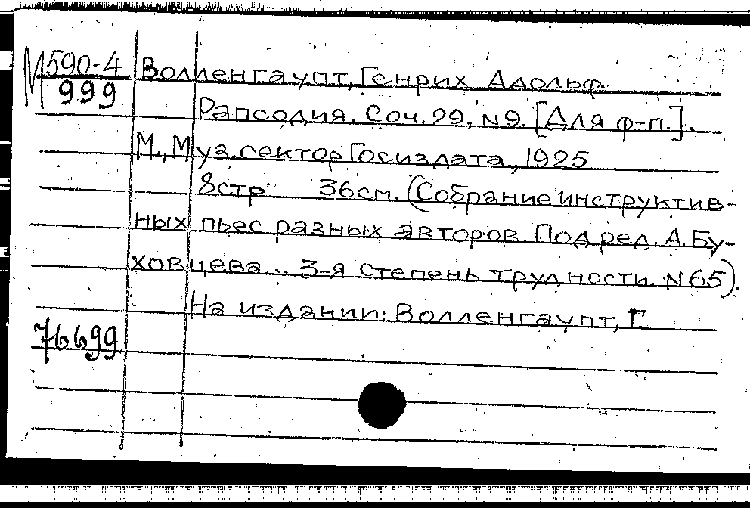 М590-4
999
Волленгаупт, Генрих Адольф.
Рапсодия. Соч. 29, N9. [Для ф-п.].
М., Муз. сектор Госиздата, 1925
8стр 36см. (Собрание инструктив-
ных пьес разных авторов. Под ред. А. Бу-
ховцева... 3-я степень трудности. N65).
На издании: Волленгаупт, Г.
76699